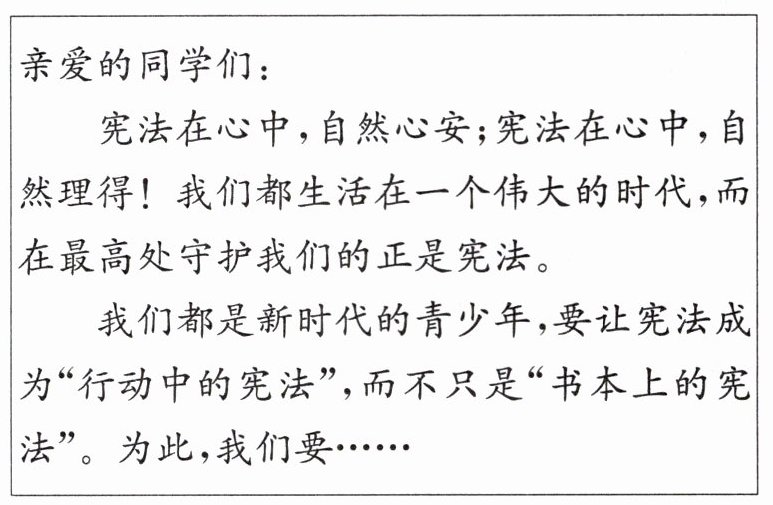 亲爱的同学们：
宪法在心中，自然心安；宪法在心中，自
然理得！我们都生活在一个伟大的时代，而
在最高处守护我们的正是宪法。
我们都是新时代的青少年，要让宪法成
为“行动中的宪法”，而不只是“书本上的宪
法”。为此，我们要……